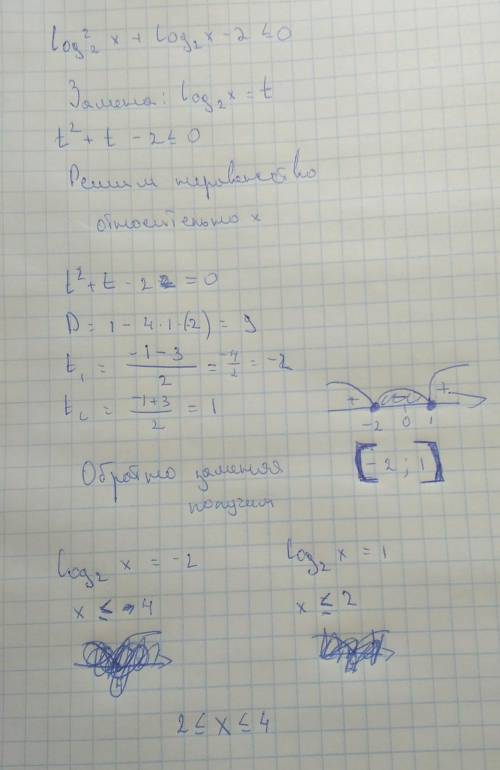 log₂² x + log₂ x - 2 ≤ 0
Замена: log₂ x = t
t² + t - 2 ≤ 0
Решим неравенство
относительно x
t² + t - 2 = 0
D = 1 - 4·1·(-2) = 9
t₁ = (-1-3)/2 = -4/2 = -2
t₂ = (-1+3)/2 = 1
+ +
-2 0 1
[-2; 1]
Обратно заменяя
получим
log₂ x = -2 log₂ x = 1
x ≤ -4 x ≤ 2
2 ≤ x ≤ 4